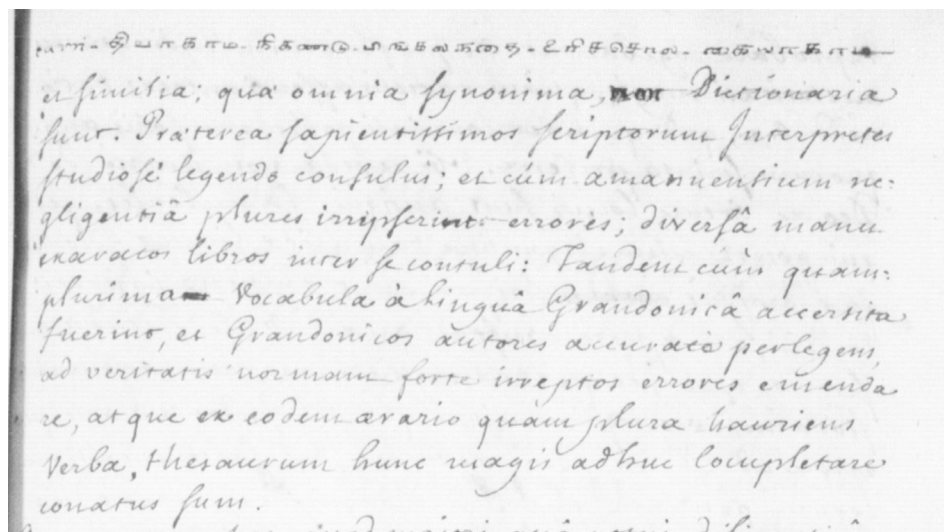 திவாகாம - நிகண்டு - பிங்கலகதை - உரிசசொல -
et similia; quæ omnia synonima, non Dictionaria
sunt. Præterea sapientissimos scriptorum Interpretes
studiosè legendo consului; et cùm amanuensium ne:
gligentiâ plures irripserint errores; diversâ manu
exaratos libros inter se contuli: Tandem cùm quam:
plurima vocabula à linguâ Grandonicâ accersita
fuerint, et Grandonicos autores accuratè perlegens,
ad veritatis normam forte irreptos errores emenda
re, atque ex eodem ærario quam plura hauriens
verba, thesaurum hunc magis adhuc locupletare
conatus sum.